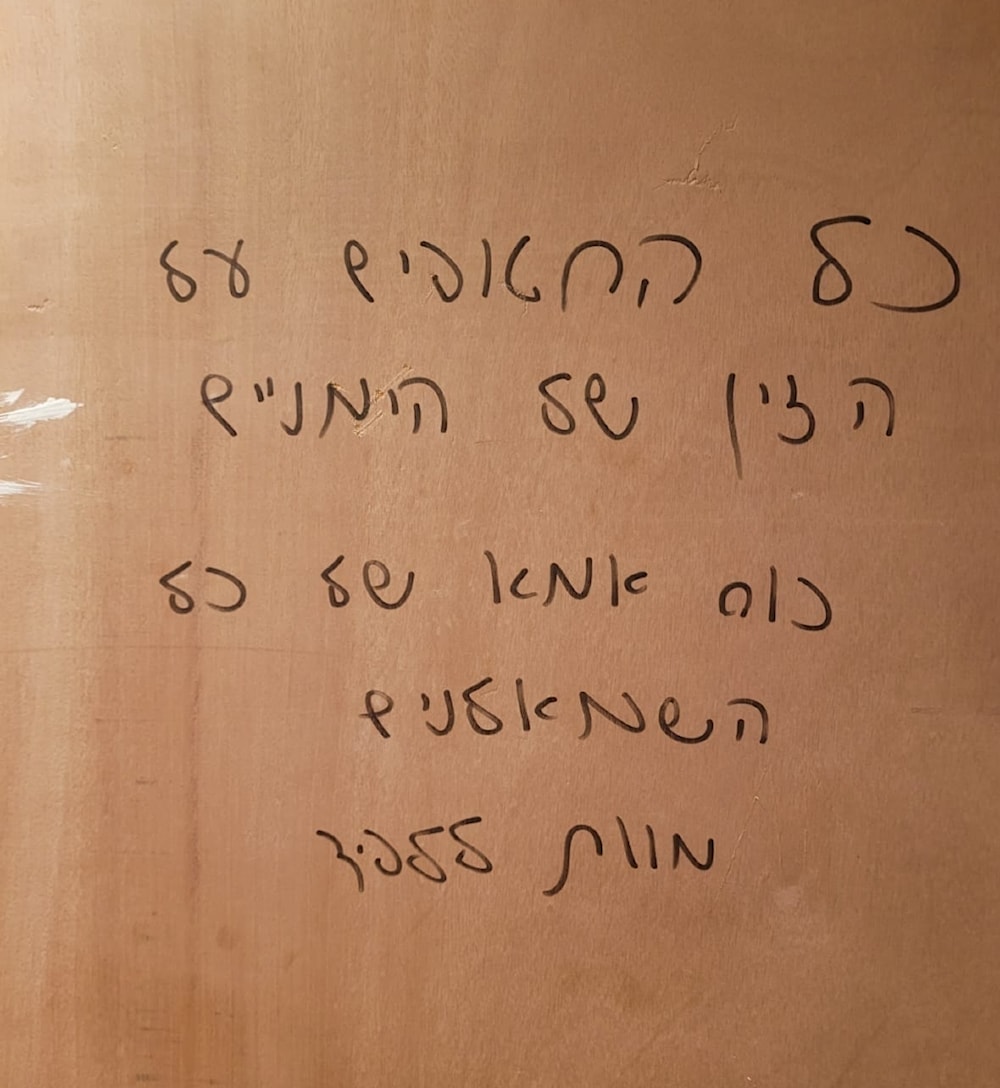 כל החטופים על
הזין של הימניים
כוס אמא של כל
השמאלנים
מוות ללפיד